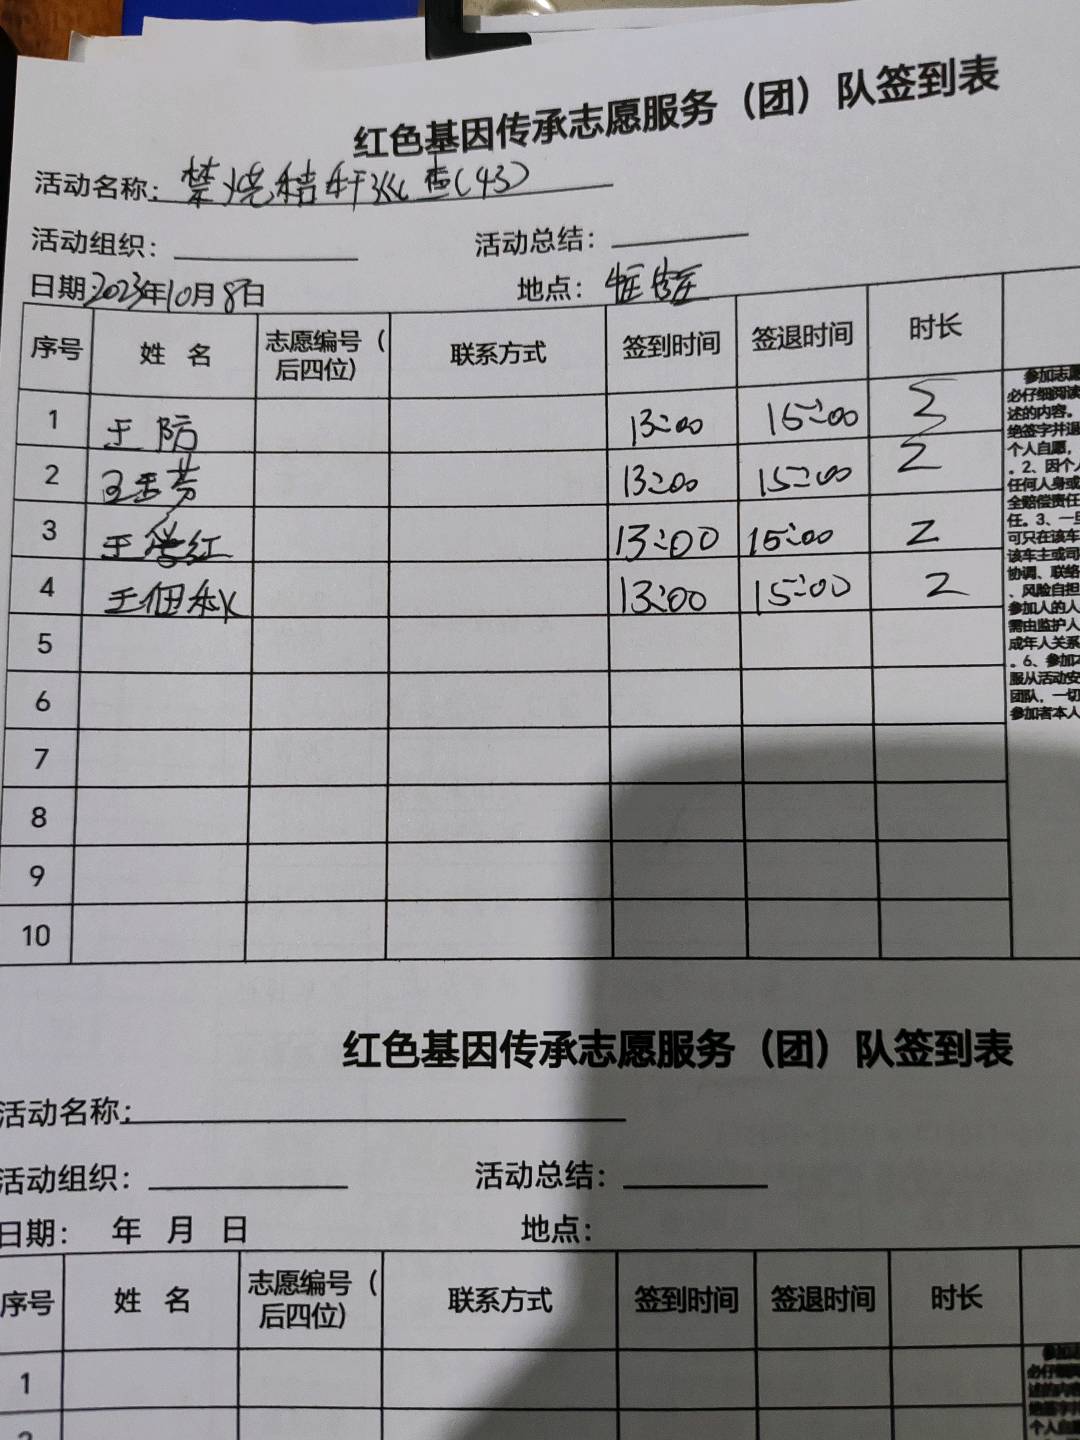 红色基因传承志愿服务（团）队签到表
活动名称：禁烧秸秆巡查(43)
活动组织：
活动总结：
日期2023年10月8日
地点：
序号 姓 名 志愿编号（后四位） 联系方式 签到时间 签退时间 时长
1 于防 13:00 15:00 2
2 13:00 15:00 2
3 13:00 15:00 2
4 13:00 15:00 2
5
6
7
8
9
10
参加志愿
必仔细阅读
述的内容。
绝签字并退
个人自愿，
。2、因个人
任何人身或
全赔偿责任
任。3、一旦
可只在该车
该车主或司
协调、联络
、风险自担
参加人的人
需由监护人
成年人关系
。6、参加
服从活动安
团队，一切
参加者本人
红色基因传承志愿服务（团）队签到表
活动名称：
活动组织：
活动总结：
日期： 年 月 日
地点：
序号 姓 名 志愿编号（后四位） 联系方式 签到时间 签退时间 时长
1